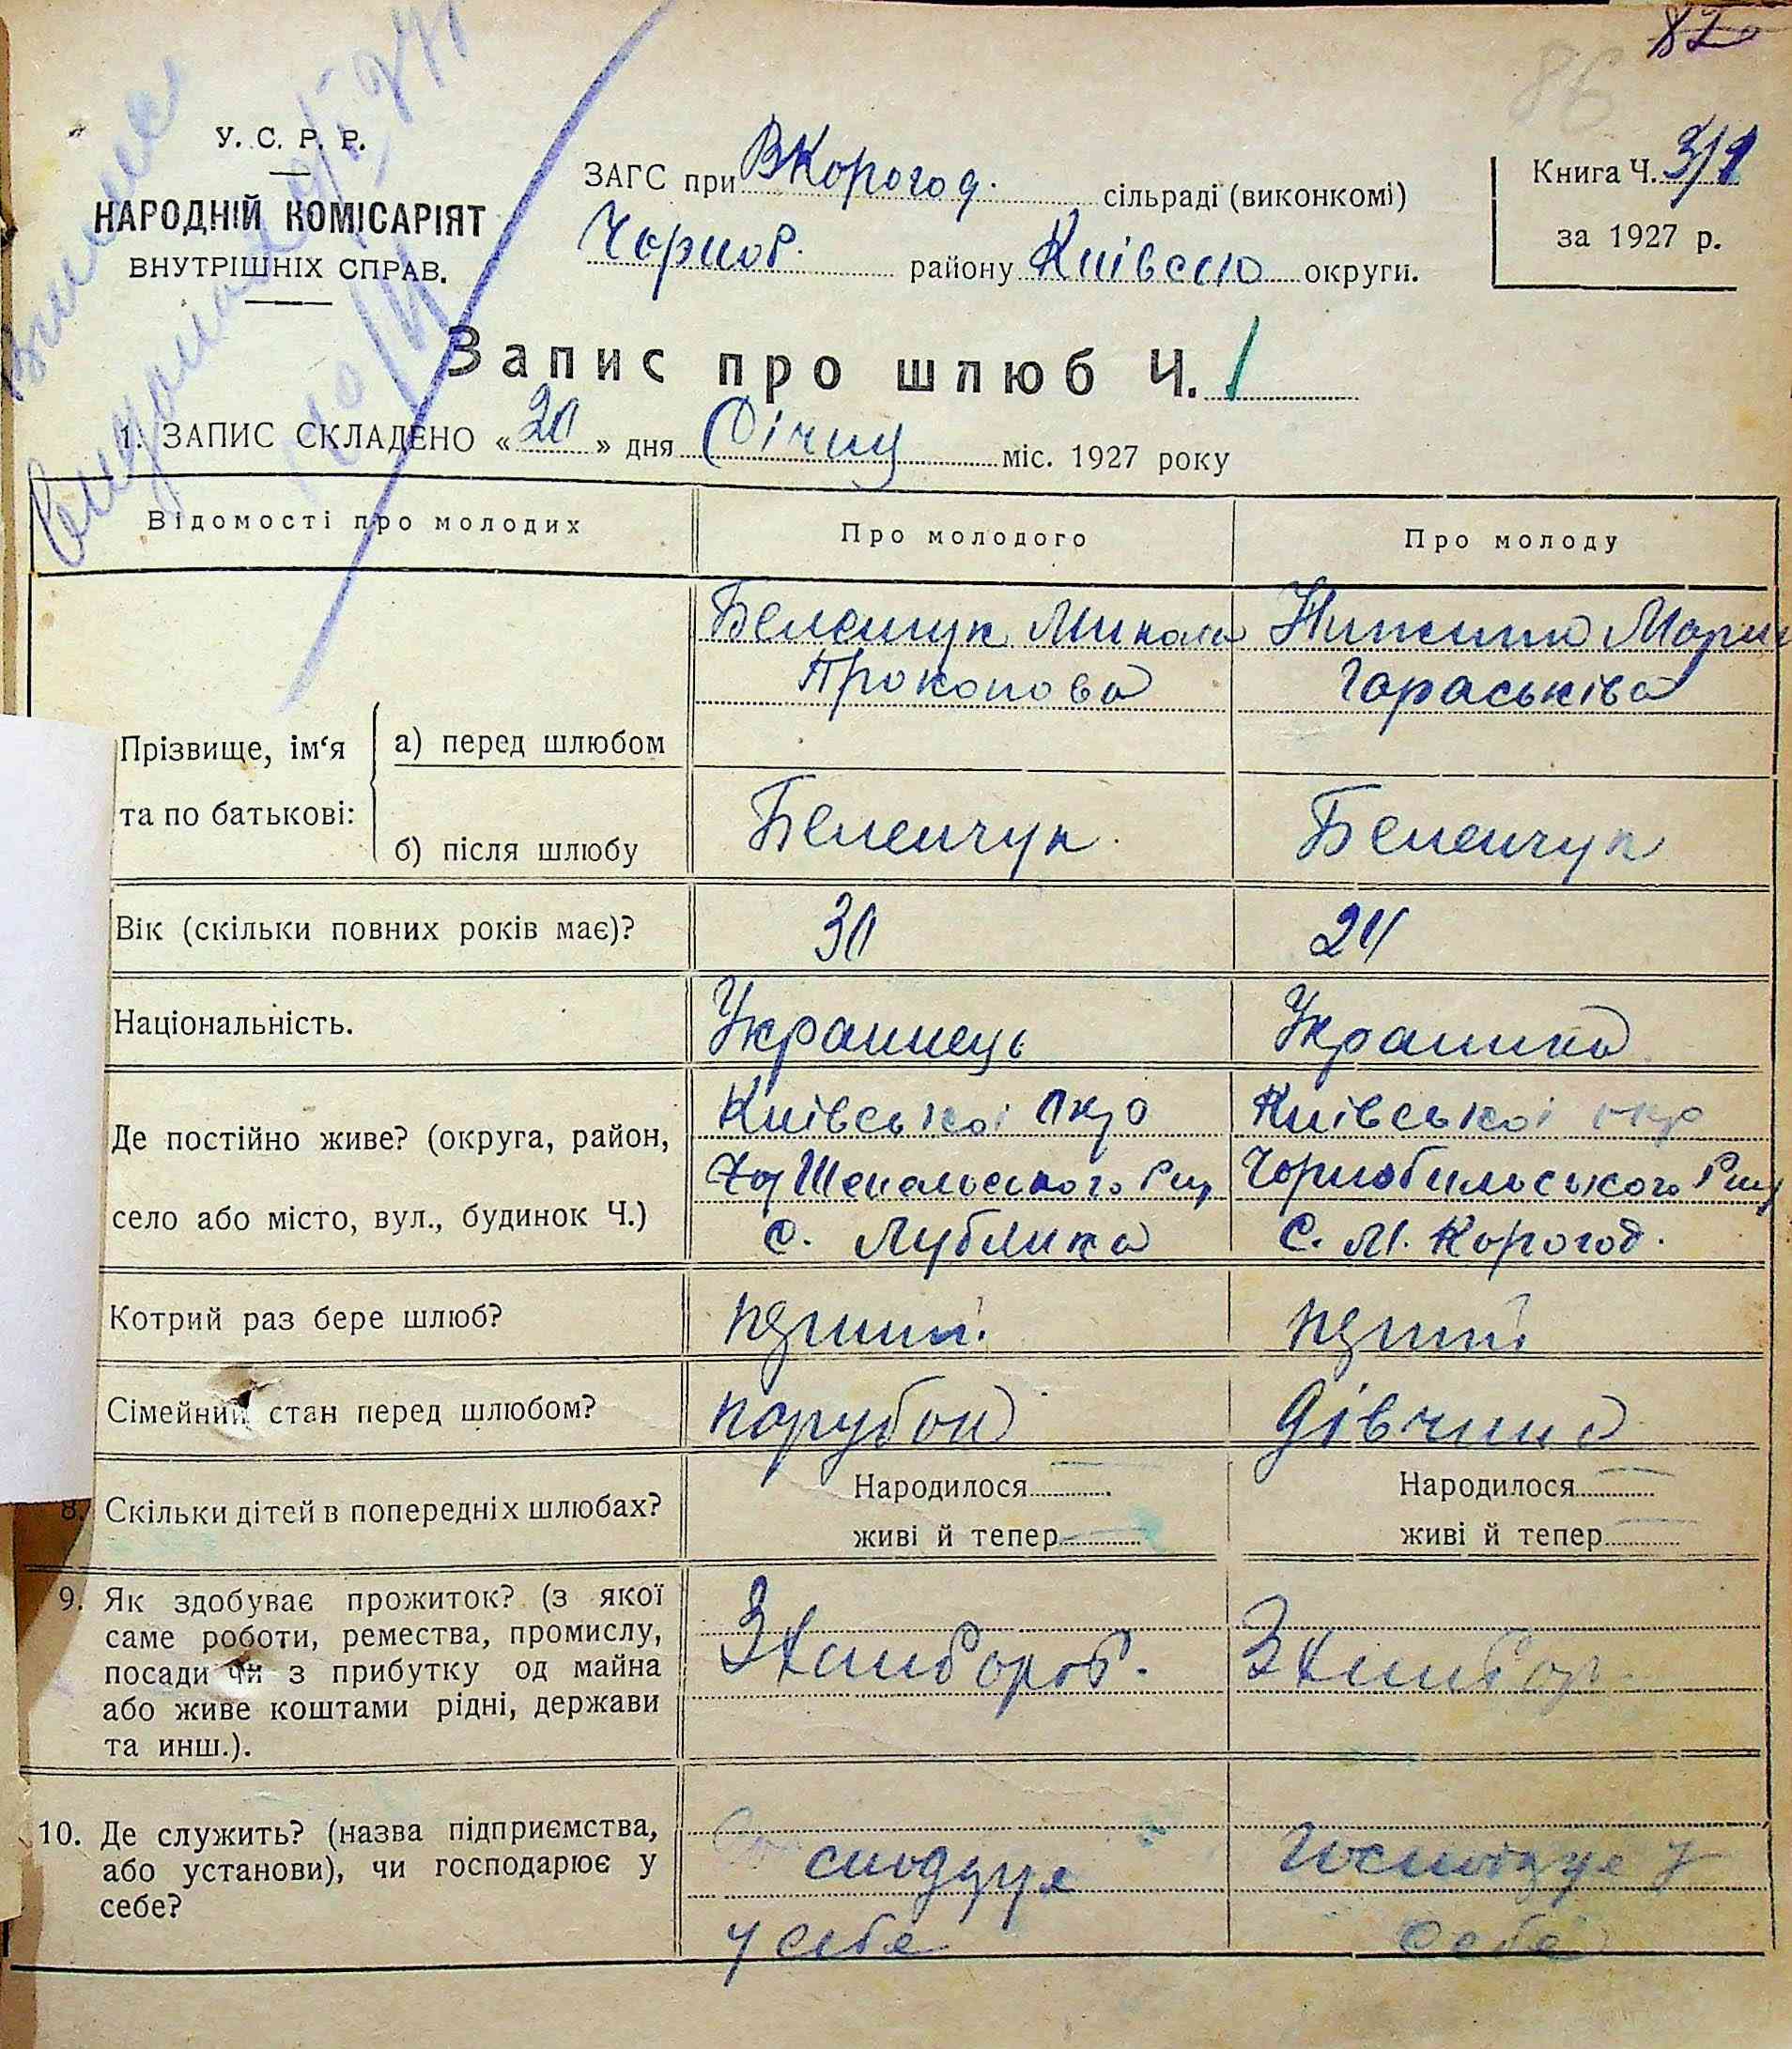 86
У. С. Р. Р.
НАРОДНІЙ КОМІСАРІЯТ
ВНУТРІШНІХ СПРАВ.
ЗАГС при ВКорогод. сільраді (виконкомі)
Чорноб. району Київсько округи.
Книга Ч. 3/1
за 1927 р.
Запис про шлюб Ч. 1
1. ЗАПИС СКЛАДЕНО « 20 » дня Січня міс. 1927 року
Відомості про молодих
Про молодого
Про молоду
Прізвище, ім‘я та по батькові:
а) перед шлюбом
Беленчук Микола
Прокопова
Мария
Гараськіва
б) після шлюбу
Беленчук
Беленчук
Вік (скільки повних років має)?
30
24
Національність.
Украинець
Украинка
Де постійно живе? (округа, район,
село або місто, вул., будинок Ч.)
Київської окр
Шепельського Рну
с. Лубянка
Київської окр
Чорнобильського Рну
С. М. Корогод.
Котрий раз бере шлюб?
перший
перший
Сімейний стан перед шлюбом?
парубок
дівчина
8. Скільки дітей в попередніх шлюбах?
Народилося —
живі й тепер —
Народилося —
живі й тепер —
9. Як здобуває прожиток? (з якої
саме роботи, ремества, промислу,
посади чи з прибутку од майна
або живе коштами рідні, держави
та инш.).
Хлибороб.
10. Де служить? (назва підприємства,
або установи), чи господарює у
себе?
у себе
у
себе